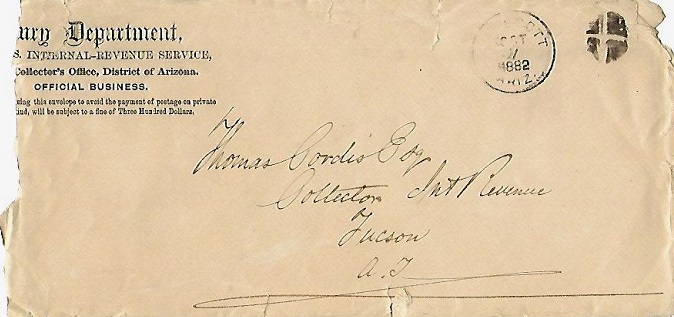 ury Department,
S. INTERNAL-REVENUE SERVICE,
Collector's Office, District of Arizona.
OFFICIAL BUSINESS.
using this envelope to avoid the payment of postage on private
ind, will be subject to a fine of Three Hundred Dollars.
OTT
OCT
1882
ARIZ.
Thomas Cordis Esq
Collector Int Revenue
Tucson
A.T